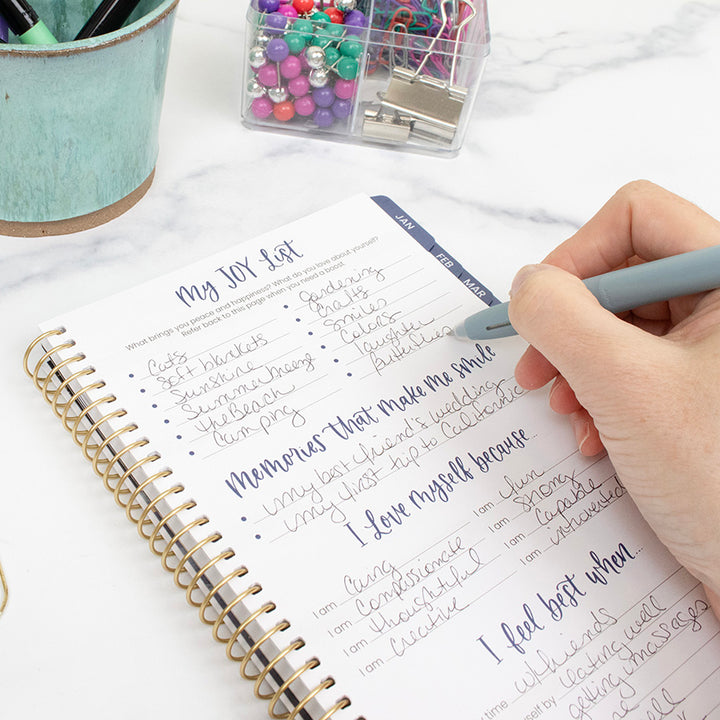 JAN
FEB
MAR
My JOY List
What brings you peace and happiness? What do you love about yourself?
Refer back to this page when you need a boost.
Cats
Soft blankets
Sunshine
Summer breeze
the Beach
Camping
Gardening
Crafts
Smiles
Colors
laughter
Butterflies
Memories that make me smile
my best friend's wedding
my first trip to California
I Love myself because...
I am Caring
I am compassionate
I am thoughtful
I am creative
I am fun
I am strong
I am capable
I am introverted
I feel best when...
time w/ friends
self by eating well
getting massages